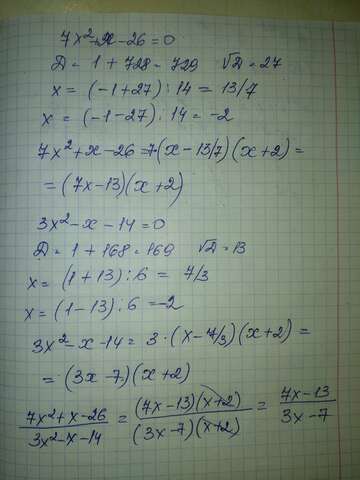 7x²+x-26=0
D = 1 + 728 = 729   √D = 27
x = (-1+27):14 = 13/7
x = (-1-27):14 = -2
7x²+x-26 = 7·(x-13/7)(x+2) =
= (7x-13)(x+2)
3x²-x-14=0
D = 1 + 168 = 169   √D = 13
x = (1+13):6 = 7/3
x = (1-13):6 = -2
3x²-x-14 = 3·(x-7/3)(x+2) =
= (3x-7)(x+2)
(7x²+x-26)/(3x²-x-14) = ((7x-13)(x+2))/((3x-7)(x+2)) = (7x-13)/(3x-7)